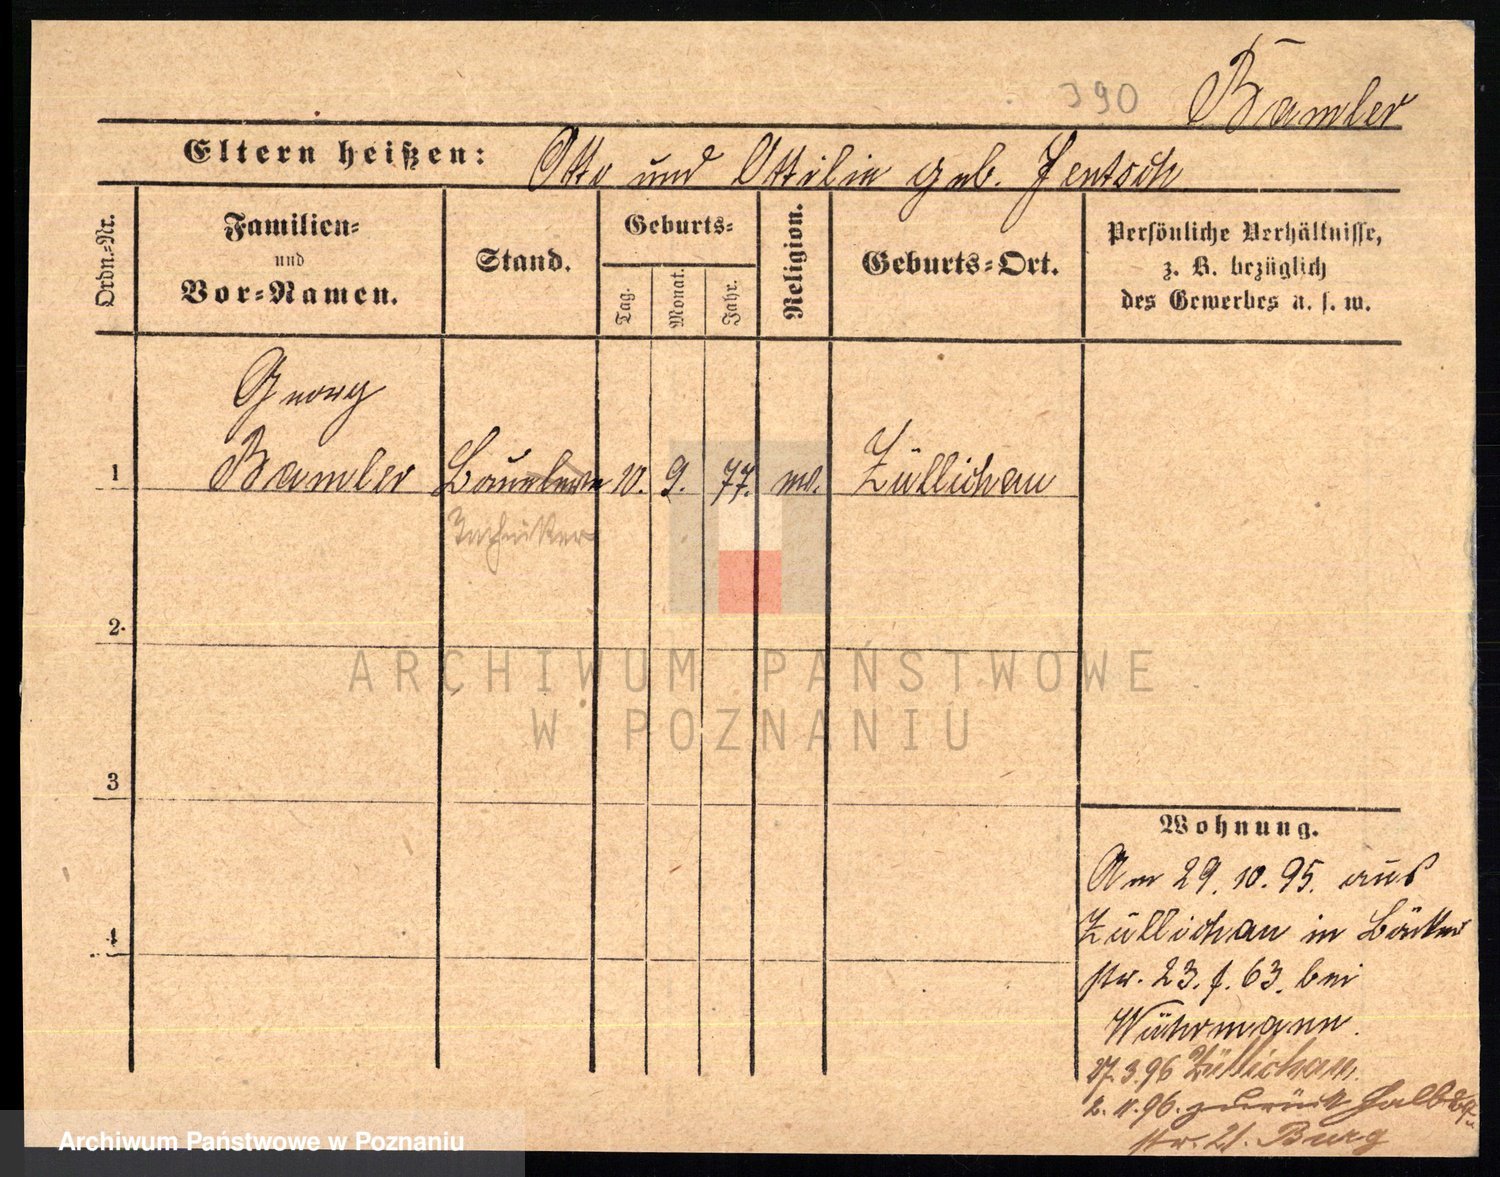 390
Bamler
Eltern heißen: Otto und Ottilie geb. Jentsch
Ordn.-Nr.
Familien-
und
Vor-Namen.
Stand.
Geburts-
Tag.
Monat.
Jahr.
Religion.
Geburts-Ort.
Persönliche Verhältnisse,
z. B. bezüglich
des Gewerbes u. s. w.
Georg
1 Bamler 10. 9. 77. ev. Züllichau
Techniker
2.
3
4
ARCHIWUM PAŃSTWOWE
W POZNANIU
Wohnung.
Am 29. 10. 95. aus
Züllichau in Bäcker
str. 23. f. 63. bei
Wührmann.
27.3.96 Züllichau.
2. 11. 96. zurück Halbdorf
str. 21. Burg
Archiwum Państwowe w Poznaniu